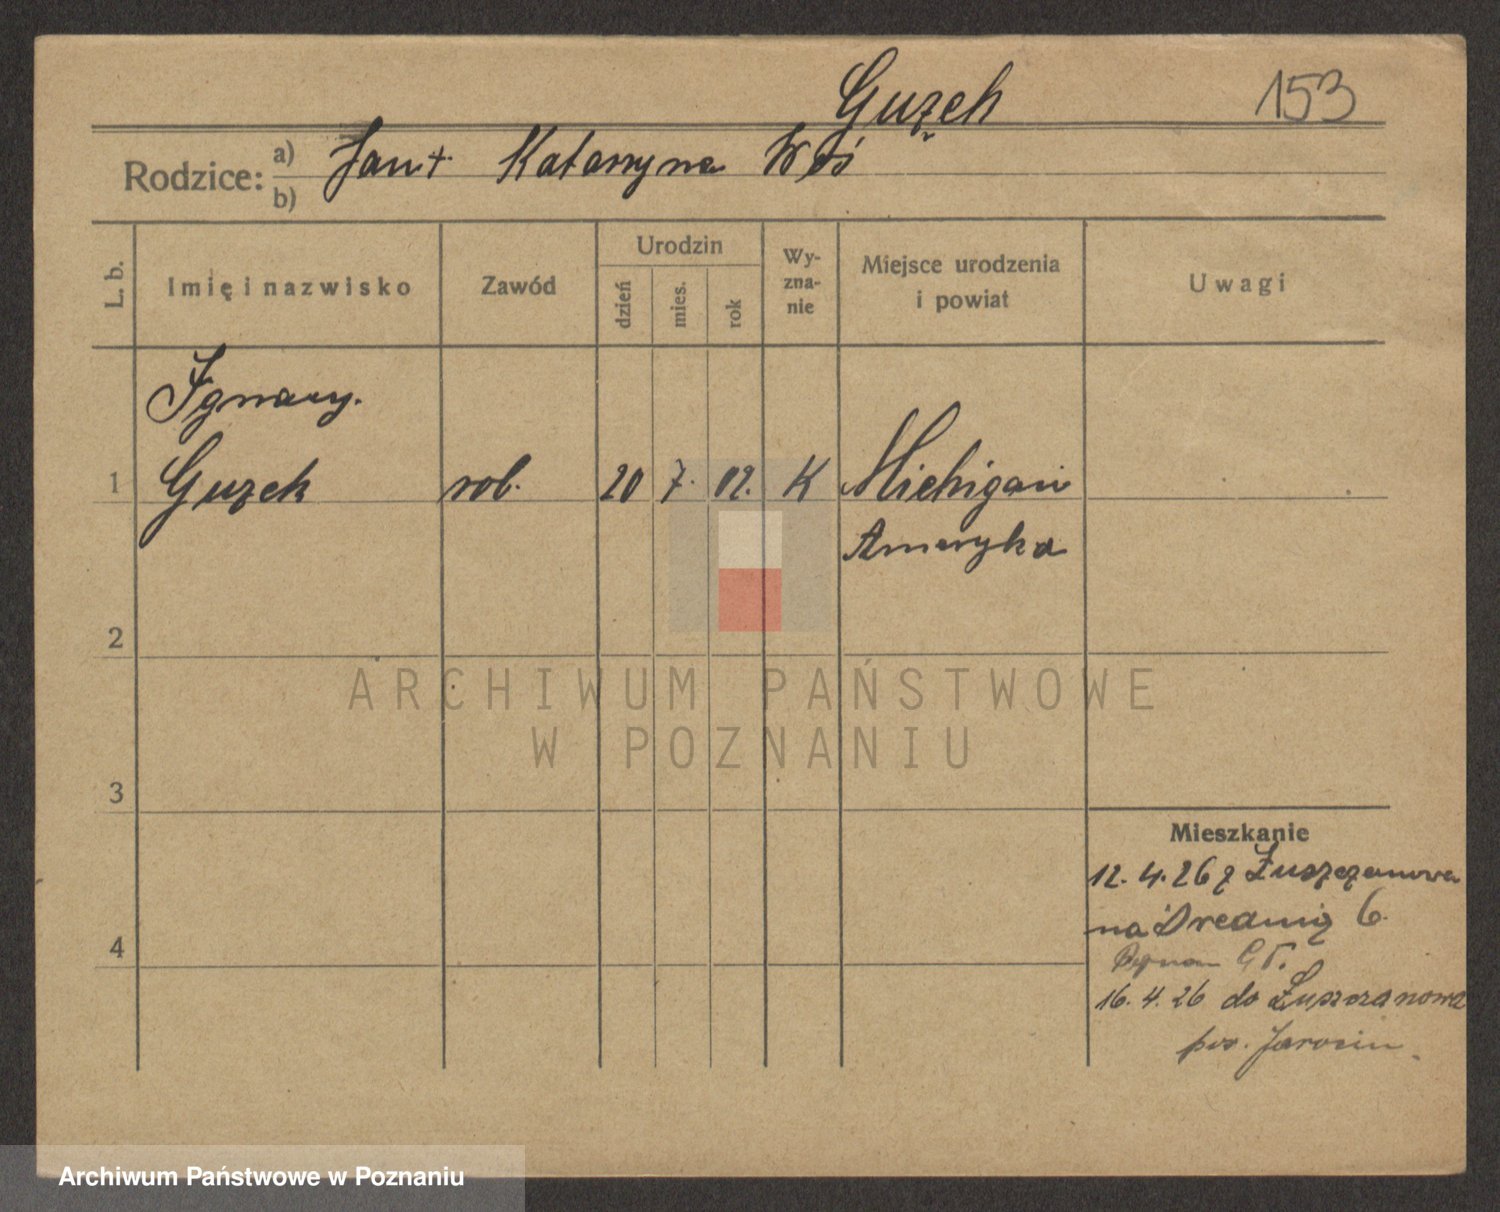 Guzek
153
Rodzice: a) Jan + Katarzyna Woś
b)
L. b.
Imię i nazwisko
Zawód
Urodzin
dzień
mies.
rok
Wy-
zna-
nie
Miejsce urodzenia
i powiat
Uwagi
Ignacy.
1 Guzek rob. 20 7. 02. K Michigan
Ameryka
2
3
4
Mieszkanie
12.4.26 z Łuszczanowa
na 6
16.4.26 do Łuszczanowa
pow. Jarocin
ARCHIWUM PAŃSTWOWE
W POZNANIU
Archiwum Państwowe w Poznaniu